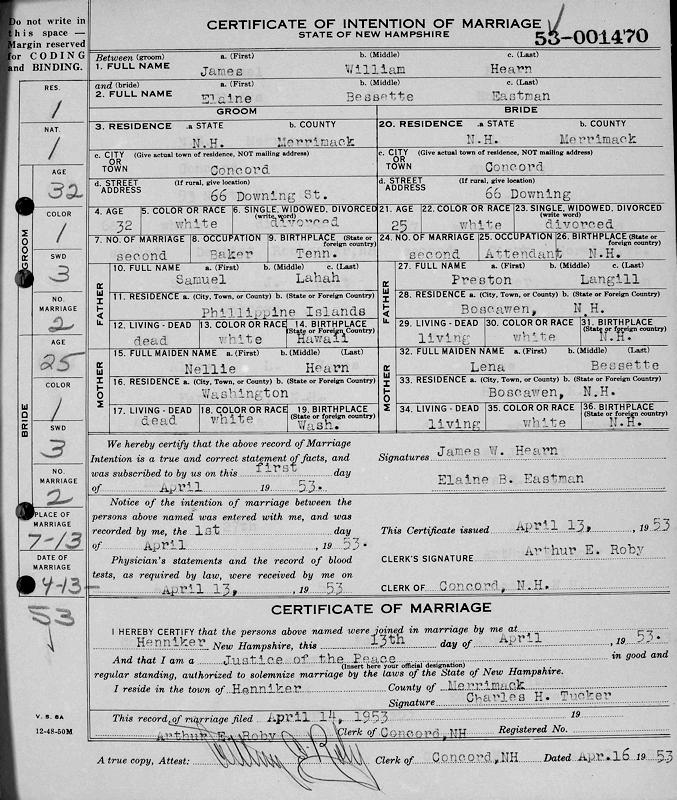 Do not write in
this space —
Margin reserved
for CODING
and BINDING.
RES.
1
NAT.
1
AGE
32
COLOR
1
GROOM
SWD
3
NO.
MARRIAGE
2
AGE
25
COLOR
1
BRIDE
SWD
3
NO.
MARRIAGE
2
PLACE OF
MARRIAGE
7-13
DATE OF
MARRIAGE
4-13-
53
V. S. 8A
12-48-50M
CERTIFICATE OF INTENTION OF MARRIAGE
STATE OF NEW HAMPSHIRE
53-001470
Between (groom) a. (First) b. (Middle) c. (Last)
1. FULL NAME James William Hearn
and (bride) a. (First) b. (Middle) c. (Last)
2. FULL NAME Elaine Bessette Eastman
GROOM BRIDE
3. RESIDENCE .a STATE b. COUNTY 20. RESIDENCE .a STATE b. COUNTY
N.H. Merrimack N.H. Merrimack
c. CITY OR TOWN (Give actual town of residence, NOT mailing address) c. CITY OR TOWN (Give actual town of residence, NOT mailing address)
Concord Concord
d. STREET ADDRESS (If rural, give location) d. STREET ADDRESS (If rural, give location)
66 Downing St. 66 Downing
4. AGE 5. COLOR OR RACE 6. SINGLE, WIDOWED, DIVORCED (write word) 21. AGE 22. COLOR OR RACE 23. SINGLE, WIDOWED, DIVORCED (write word)
32 white divorced 25 white divorced
7. NO. OF MARRIAGE 8. OCCUPATION 9. BIRTHPLACE (State or foreign country) 24. NO. OF MARRIAGE 25. OCCUPATION 26. BIRTHPLACE (State or foreign country)
second Baker Tenn. second Attendant N.H.
FATHER 10. FULL NAME a. (First) b. (Middle) c. (Last) FATHER 27. FULL NAME a. (First) b. (Middle) c. (Last)
Samuel Lahah Preston Langill
11. RESIDENCE a. (City, Town, or County) b. (State or Foreign Country) 28. RESIDENCE a. (City, Town, or County) b. (State or Foreign Country)
Phillippine Islands Boscawen, N.H.
12. LIVING - DEAD 13. COLOR OR RACE 14. BIRTHPLACE (State or Foreign Country) 29. LIVING - DEAD 30. COLOR OR RACE 31. BIRTHPLACE (State or Foreign Country)
dead white Hawaii living white N.H.
MOTHER 15. FULL MAIDEN NAME a. (First) b. (Middle) c. (Last) MOTHER 32. FULL MAIDEN NAME a. (First) b. (Middle) c. (Last)
Nellie Hearn Lena Bessette
16. RESIDENCE a. (City, Town, or County) b. (State or Foreign Country) 33. RESIDENCE a. (City, Town, or County) b. (State or Foreign Country)
Washington Boscawen, N.H.
17. LIVING - DEAD 18. COLOR OR RACE 19. BIRTHPLACE (State or foreign country) 34. LIVING - DEAD 35. COLOR OR RACE 36. BIRTHPLACE (State or foreign country)
dead white Wash. living white N.H.
We hereby certify that the above record of Marriage
Intention is a true and correct statement of facts, and
was subscribed to by us on this first day
of April 19 53.
Signatures James W. Hearn
Elaine B. Eastman
Notice of the intention of marriage between the
persons above named was entered with me, and was
recorded by me, the 1st day
of April , 19 53.
Physician's statements and the record of blood
tests, as required by law, were received by me on
April 13, , 19 53
This Certificate issued April 13, , 19 53
CLERK'S SIGNATURE Arthur E. Roby
CLERK OF Concord, N.H.
CERTIFICATE OF MARRIAGE
I HEREBY CERTIFY that the persons above named were joined in marriage by me at
Henniker New Hampshire, this 13th day of April , 19 53.
And that I am a Justice of the Peace in good and
(Insert here your official designation)
regular standing, authorized to solemnize marriage by the laws of the State of New Hampshire.
I reside in the town of Henniker County of Merrimack
Signature Charles H. Tucker
This record of marriage filed April 14, 1953 19
Arthur E. Roby Clerk of Concord, NH Registered No.
A true copy, Attest: Arthur E. Roby Clerk of Concord, NH Dated Apr. 16 19 53